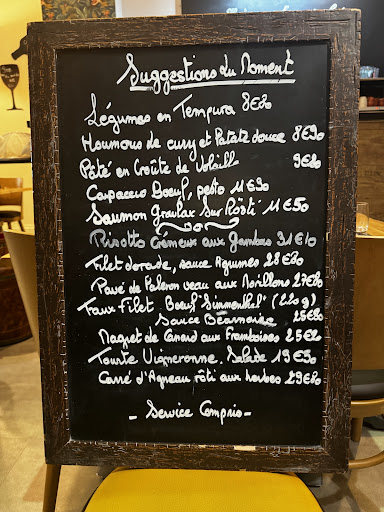 Suggestions du Moment
Légumes en Tempura 8€80
Houmous de curry et Patate douce 8€90
Pâté en Croûte de Volaille 9€80
Carpaccio Boeuf, pesto 11€90
Saumon gravlax sur Rösti 11€50
Risotto Crémeux aux Gambas 31€10
Filet dorade, sauce Agrumes 28€80
Pavé de Paleron veau aux Morilles 27€80
Faux Filet Boeuf "Simmenthal" (220g)
Sauce Béarnaise 25€80
Magret de Canard aux Framboises 25€20
Tourte Vigneronne, Salade 19€50
Carré d'Agneau rôti aux herbes 29€80
- Service Compris -